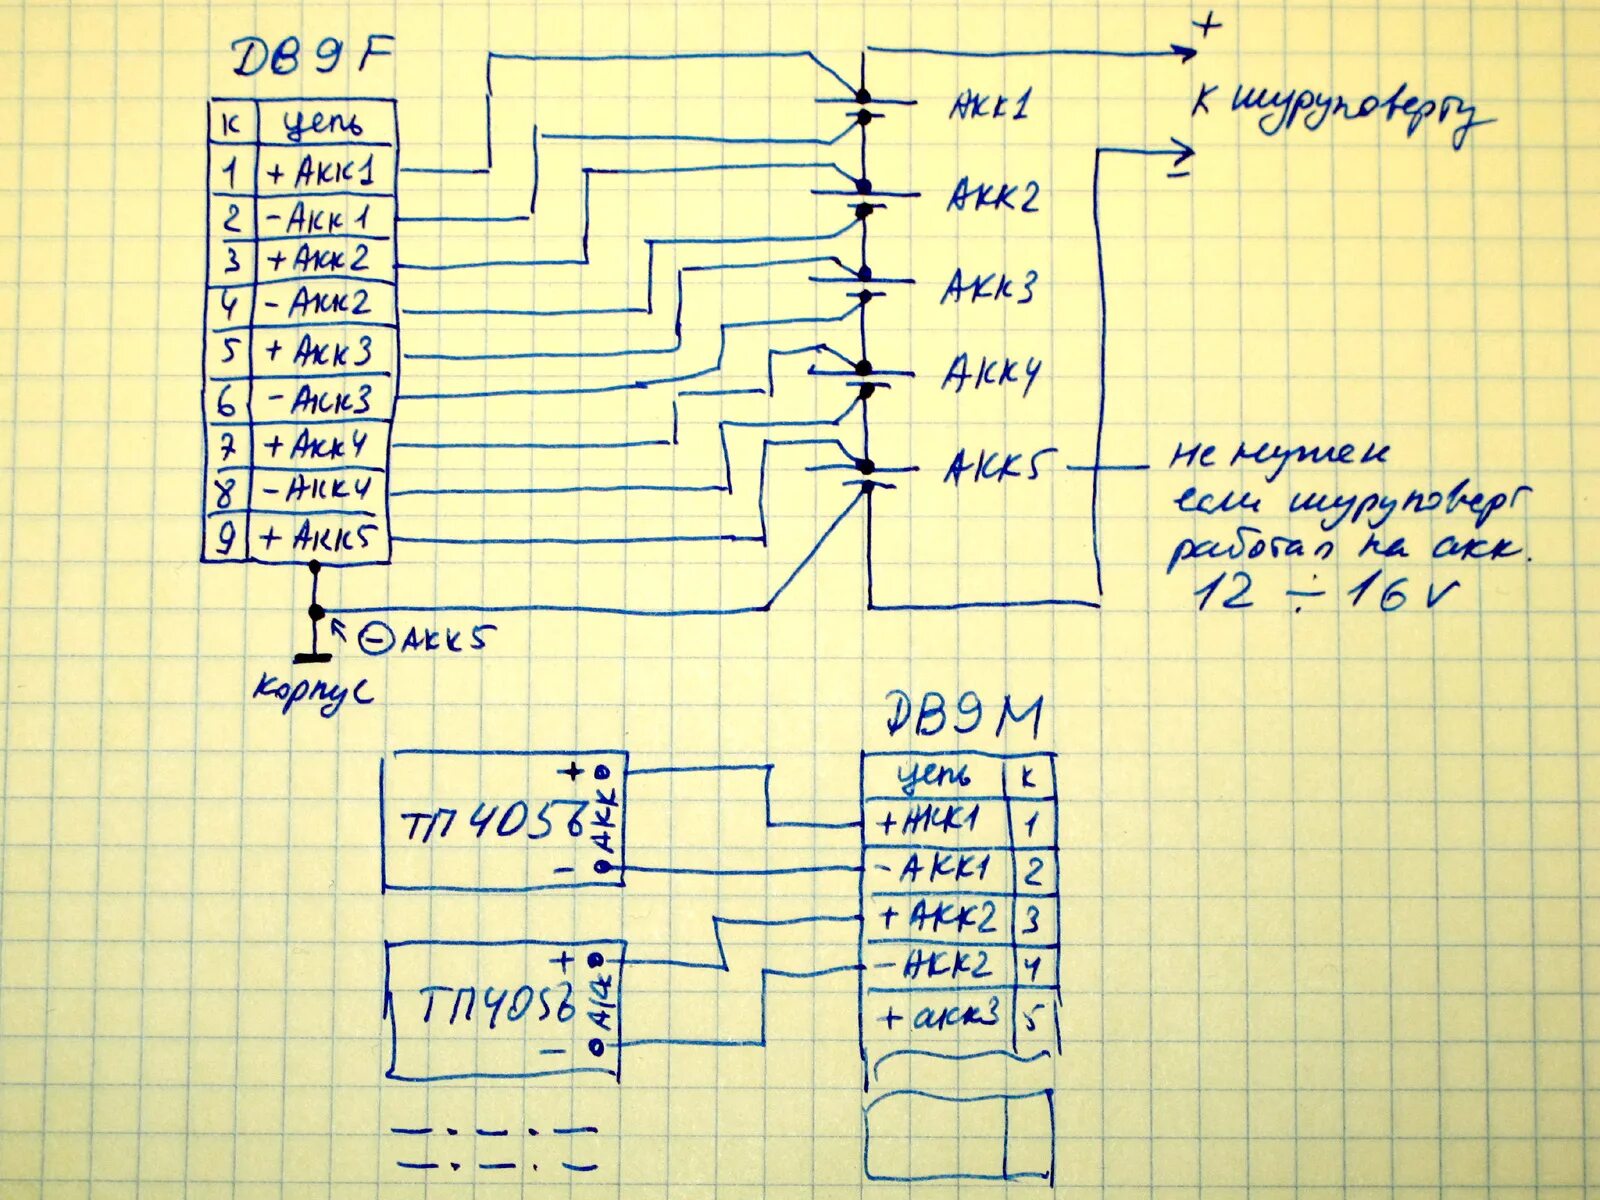 DB9F
К цепь
1 + АКК1
2 - АКК1
3 + АКК2
4 - АКК2
5 + АКК3
6 - АКК3
7 + АКК4
8 - АКК4
9 + АКК5
⊖ АКК5
корпус
АКК1
АКК2
АКК3
АКК4
АКК5
+
К шуруповерту
-
не нужен
если шуруповерт
работал на акк.
12 ÷ 16 v
ТП4056
+ АКК -
ТП4056
+ АКК -
DB9M
цепь К
+ АКК1 1
- АКК1 2
+ АКК2 3
- АКК2 4
+ акк3 5